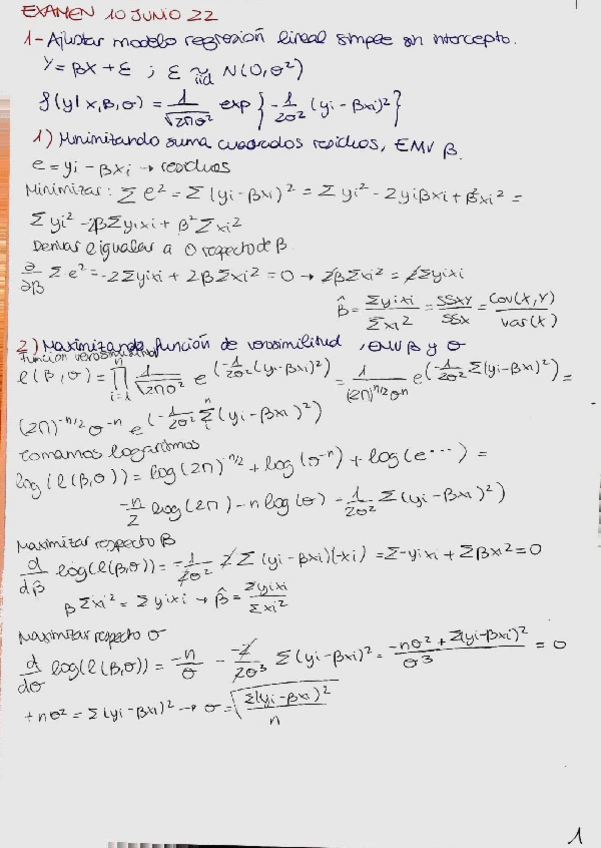 EXAMEN 10 JUNIO 22
1- Ajustar modelo regresión lineal simple sin intercepto.
Y = βX + ε ; ε ~iid N(0,σ²)
f(y|x,β,σ) = 1/√2πσ² exp{-1/2σ² (yi - βxi)²}
1) Minimizando suma cuadrados residuos, EMV β.
e = yi - βxi → residuos
Minimizar: Σ e² = Σ (yi - βxi)² = Σ yi² - 2yiβxi + β²xi² =
Σ yi² - 2βΣyixi + β²Σxi²
Derivar e igualar a 0 respecto de β
∂/∂β Σe² = -2Σyixi + 2βΣxi² = 0 → 2βΣxi² = 2Σyixi
β̂ = Σyixi/Σxi² = SSXY/SSX = Cov(X,Y)/Var(X)
2) Maximizando función de verosimilitud, EMV β y σ
Función verosimilitud
l(β,σ) = ∏ⁿi=1 1/√2πσ² e^(-1/2σ² (yi-βxi)²) = 1/(2π)^n/2 σ^n e^(-1/2σ² Σ(yi-βxi)²) =
(2π)^-n/2 σ^-n e^(-1/2σ² Σ(yi-βxi)²)
Tomamos logaritmos
log(l(β,σ)) = log(2π)^-n/2 + log(σ^-n) + log(e···) =
-n/2 log(2π) - n log(σ) - 1/2σ² Σ(yi-βxi)²)
Maximizar respecto β
d/dβ log(l(β,σ)) = -1/2σ² 2 Σ (yi-βxi)(-xi) = Σ-yixi + Σβxi² = 0
βΣxi² = Σyixi → β̂ = Σyixi/Σxi²
Maximizar respecto σ
d/dσ log(l(β,σ)) = -n/σ - -2/2σ³ Σ(yi-βxi)² = -nσ² + Σ(yi-βxi)²/σ³ = 0
+nσ² = Σ(yi-βxi)² → σ = √Σ(yi-βxi)²/n
1